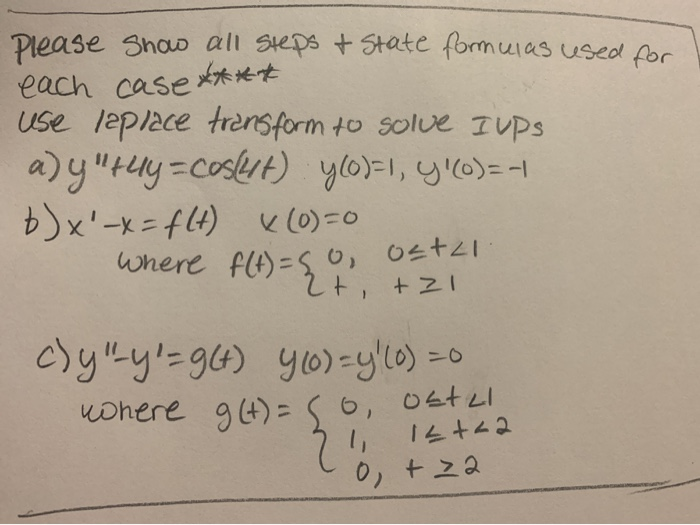 Please show all steps + state formulas used for
each case ****
use laplace transform to solve IVPs
a) y"+4y=cos(4t) y(0)=1, y'(0)=-1
b) x'-x=f(t) x(0)=0
where f(t)={ 0, 0≤t<1
t, t≥1
c) y"-y'=g(t) y(0)=y'(0)=0
where g(t)={ 0, 0≤t<1
1, 1≤t<2
0, t≥2